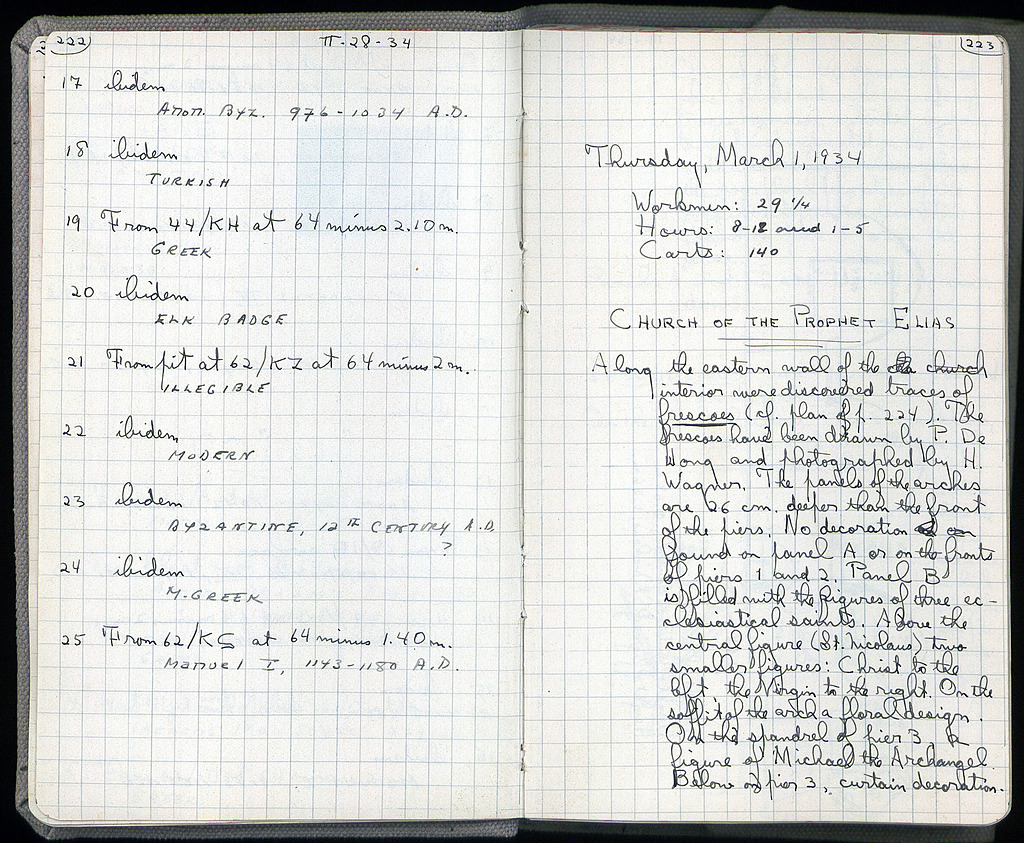 222
II-28-34
17 ibidem
Anon. Byz. 976-1034 A.D.
18 ibidem
TURKISH
19 From 44/KH at 64 minus 2.10 m.
GREEK
20 ibidem
ELK BADGE
21 From pit at 62/KZ at 64 minus 2 m.
ILLEGIBLE
22 ibidem
MODERN
23 ibidem
BYZANTINE, 12TH CENTURY A.D.
?
24 ibidem
M. GREEK
25 From 62/KS at 64 minus 1.40 m.
Manuel I, 1143-1180 A.D.
223
Thursday, March 1, 1934
Workmen: 29 1/4
Hours: 8-12 and 1-5
Carts: 140
CHURCH OF THE PROPHET ELIAS
Along the eastern wall of the church
interior were discovered traces of
frescoes (cf. plan of p. 224). The
frescoes have been drawn by P. De
Jong and photographed by H.
Wagner. The panels of the arches
are 26 cm. deeper than the front
of the piers. No decoration
found on panel A or on the fronts
of piers 1 and 2. Panel B
is filled with the figures of three ec-
clesiastical saints. Above the
central figure (St. Nicolaus) two
smaller figures: Christ to the
left, the Virgin to the right. On the
soffit of the arch a floral design.
On the spandrel of pier 3, a
figure of Michael the Archangel.
Below on pier 3, curtain decoration.